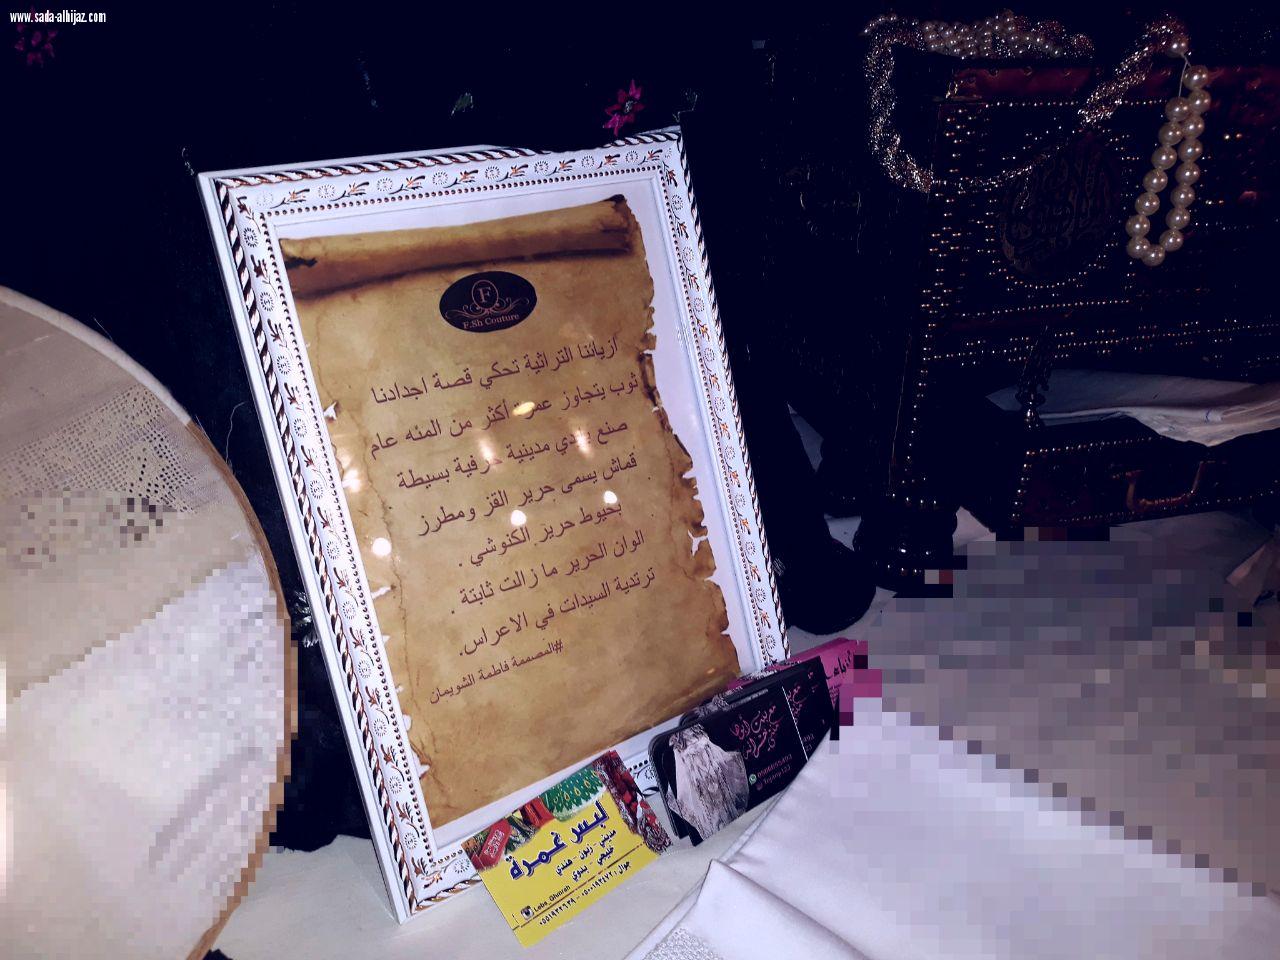 www.sada-alhijaz.com
F
F.Sh Couture
ازيائنا التراثية تحكي قصة اجدادنا
ثوب يتجاوز عمرة أكثر من المئه عام
صنع بأيدي مدينية حرفية بسيطة
قماش يسمى حرير القز ومطرز
بخيوط حرير الكنوشي .
الوان الحرير ما زالت ثابتة .
ترتدية السيدات في الاعراس.
#المصممة فاطمة الشويمان
لبس غمرة
مديني - زبون - هندي
خليجي - بدوي
Lebs_Ghmrah